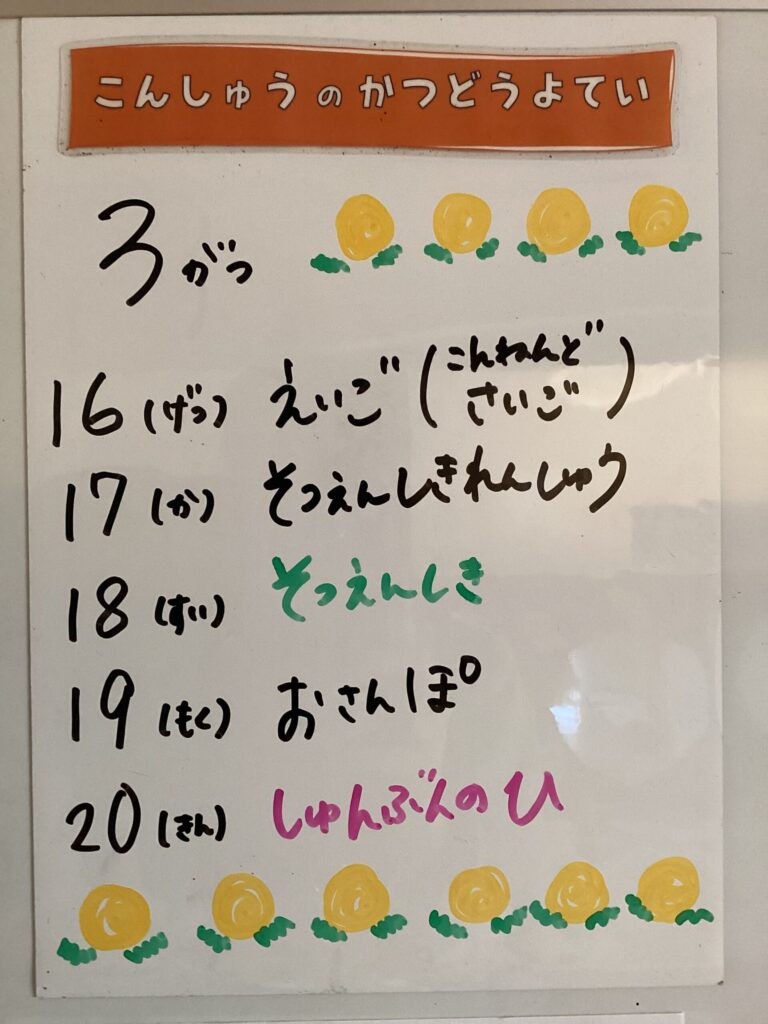 こんしゅう の かつどうよてい
3がつ
16(げつ) えいご(こんねんどさいご)
17(か) そつえんしきれんしゅう
18(すい) そつえんしき
19(もく) おさんぽ
20(きん) しゅんぶんのひ